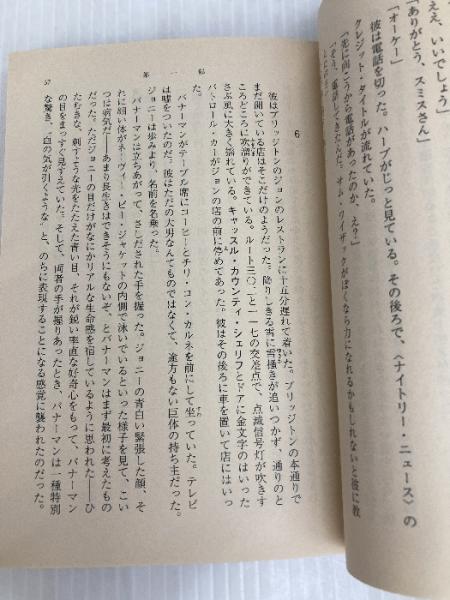 ええ、いいでしょう」
「ありがとう、スミスさん」
「オーケー」
彼は電話を切った。ハーブがじっと見ている。その後ろで、〈ナイトリー・ニュース〉の
クレジット・タイトルが流れていた。
「先に向こうから電話があったのか、え?」
「そう、電話してきたんだ。サム・ワイザックがぼくなら力になれるかもしれないと彼に教
6
彼はブリッジトンのジョンのレストランに十五分遅れて着いた。ブリッジトンの本通りで
まだ開いている店はそこだけのようだった。降りしきる雪に雪掻きが追いつかず、通りのと
ころどころに吹溜りができている。ルート三〇二と一一七の交差点で、点滅信号灯が吹きす
さぶ風に大きく揺れている。キャッスル・カウンティ・シェリフとドアに金文字のはいった
パトロール・カーがジョンの店の前に停めてあった。彼はその後ろに車を置いて店にはいっ
た。
バナーマンがテーブル席にコーヒーとチリ・コン・カルネを前にして坐っていた。テレビ
は嘘をついたのだ。彼はただの大男なんてものではなくて、途方もない巨体の持ち主だった。
ジョニーは歩みより、名前を名乗った。
バナーマンは立ちあがって、さしだされた手を握った。ジョニーの青白い緊張した顔、そ
れに細い体がネーヴィー・ピー・ジャケットの内側で泳いでいるといった様子を見て、こい
つは病気だ――あまり長生きはできそうにもないぞ、とバナーマンはまず最初に考えたもの
だった。ただジョニーの目だけがなにかリアルな生命感を宿しているように思われた――ひ
たむきな、刺すような光をたたえた青い目、それが鋭い率直な好奇心をもって、バナーマン
の目をまっすぐ見すえていた。そして、両者の手が握りあったとき、バナーマンは一種特別
な驚き、“血の気が引くような”と、のちに表現することになる感覚に襲われたのだった。
第一部
57